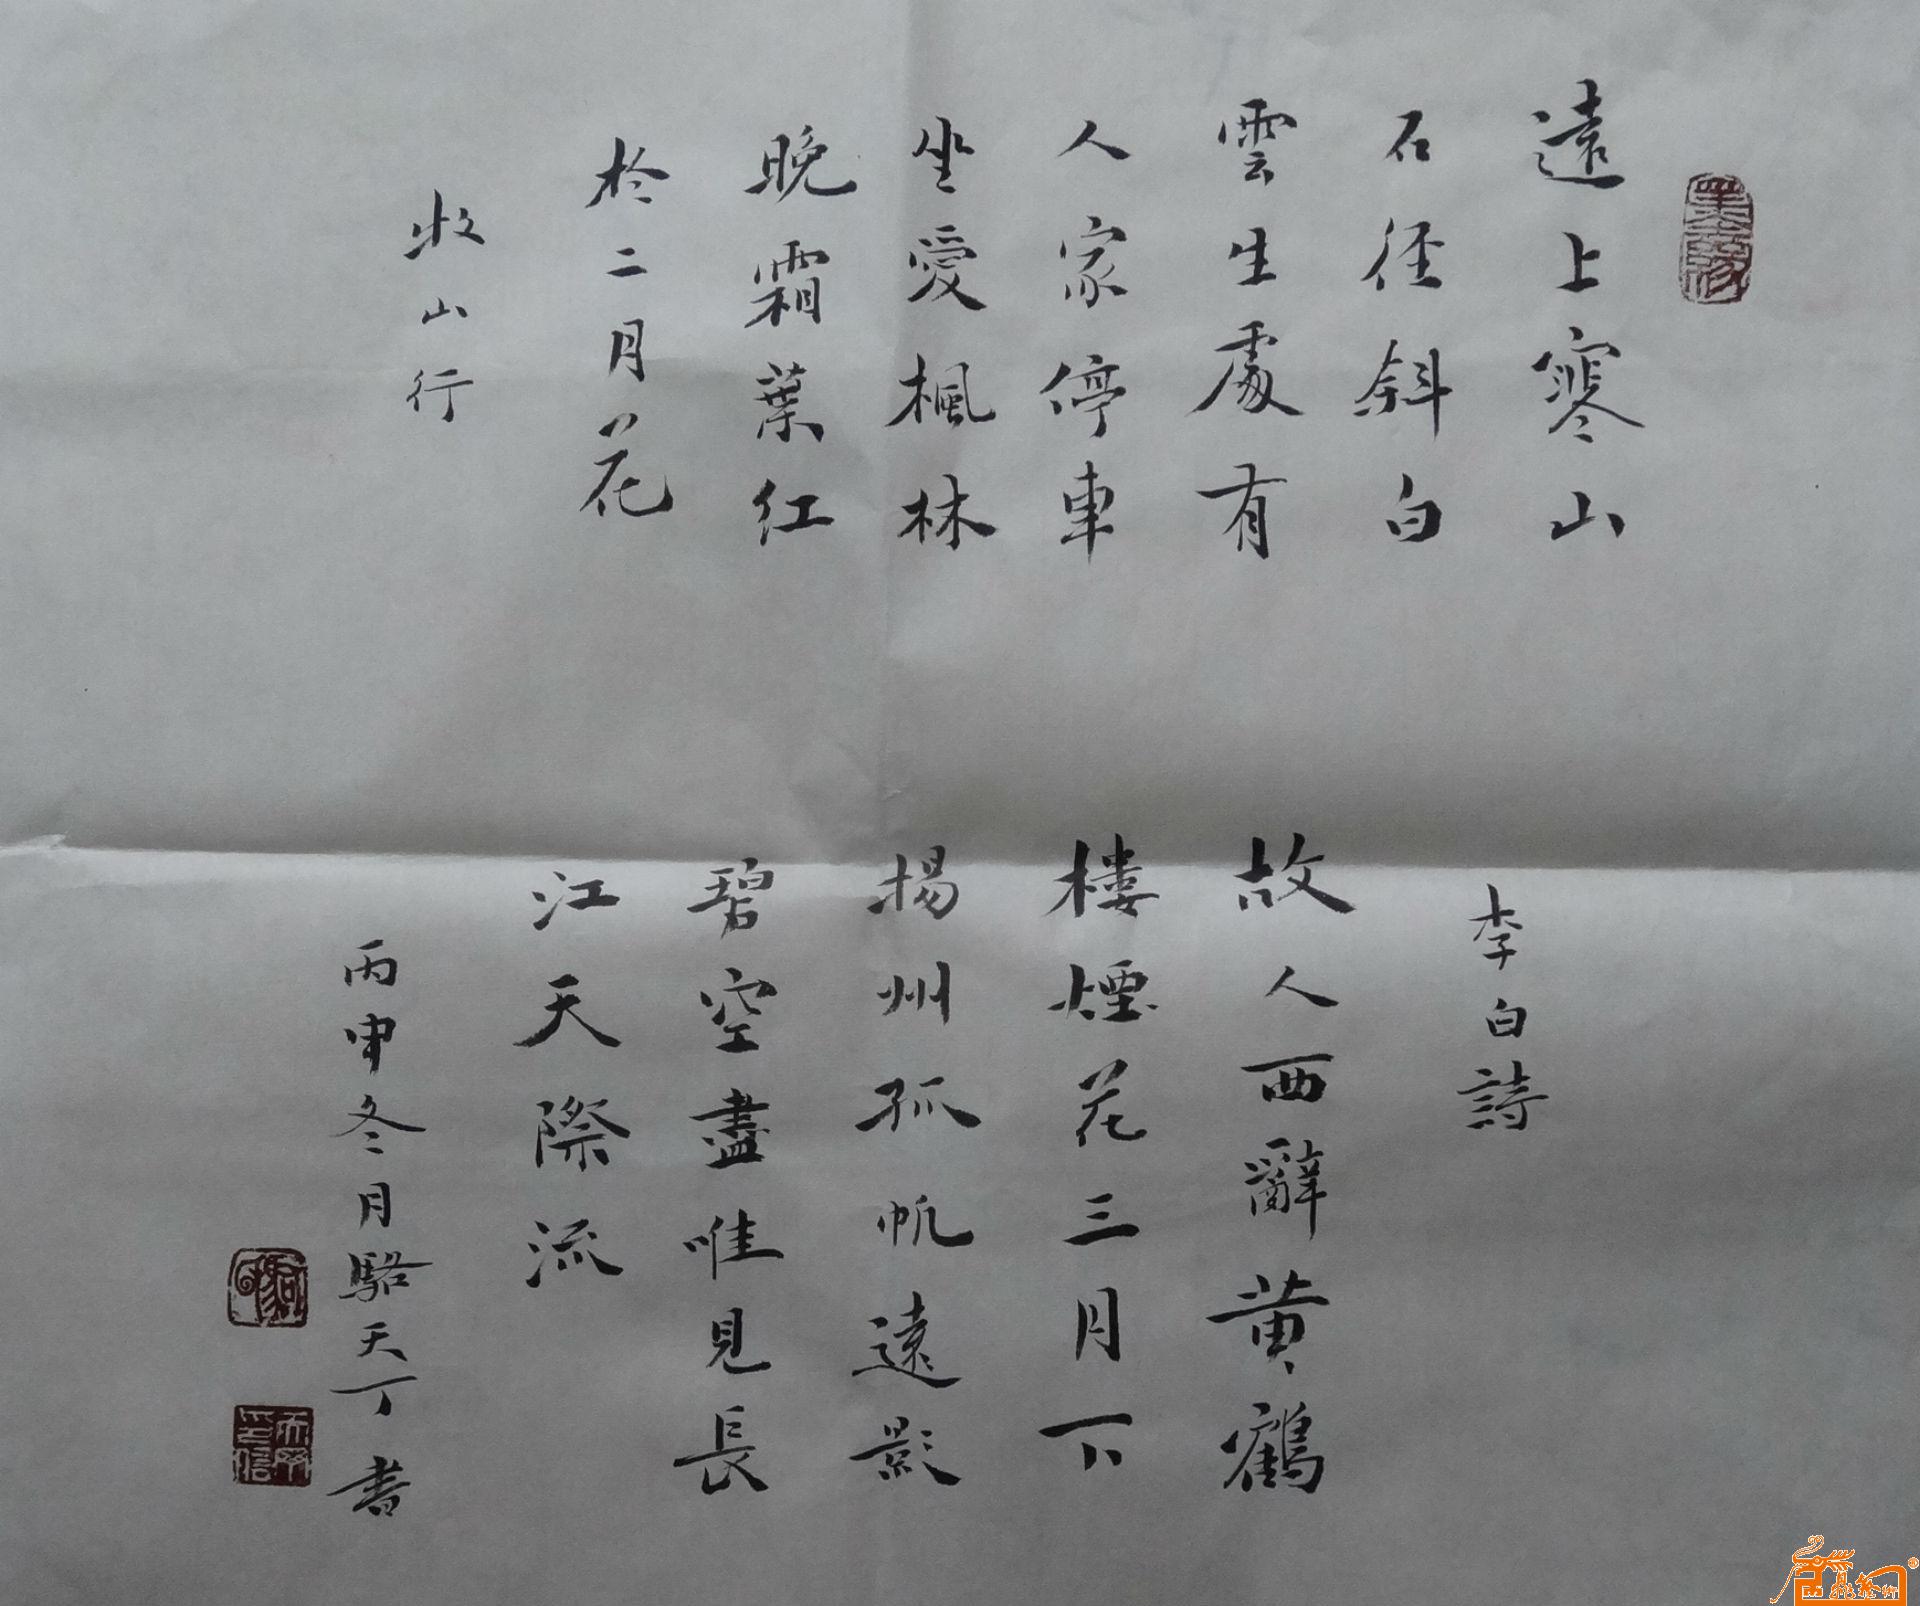 遠上寒山
石径斜白
雲生處有
人家停車
坐愛楓林
晚霜葉红
於二月花
牧山行
李白詩
故人西辭黄鶴
楼煙花三月下
揚州孤帆遠影
碧空盡唯見長
江天際流
丙申冬月駱天丁書